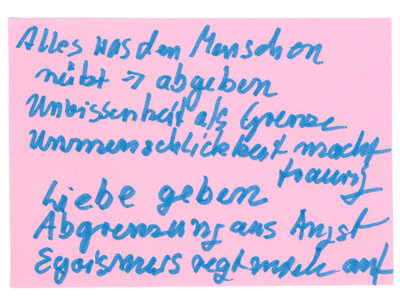 Alles was den Menschen
nützt → abgeben
Unwissenheit als Grenze
Unmenschlichkeit macht
traurig
Liebe geben
Abgrenzung aus Angst
Egoismus regt mich auf